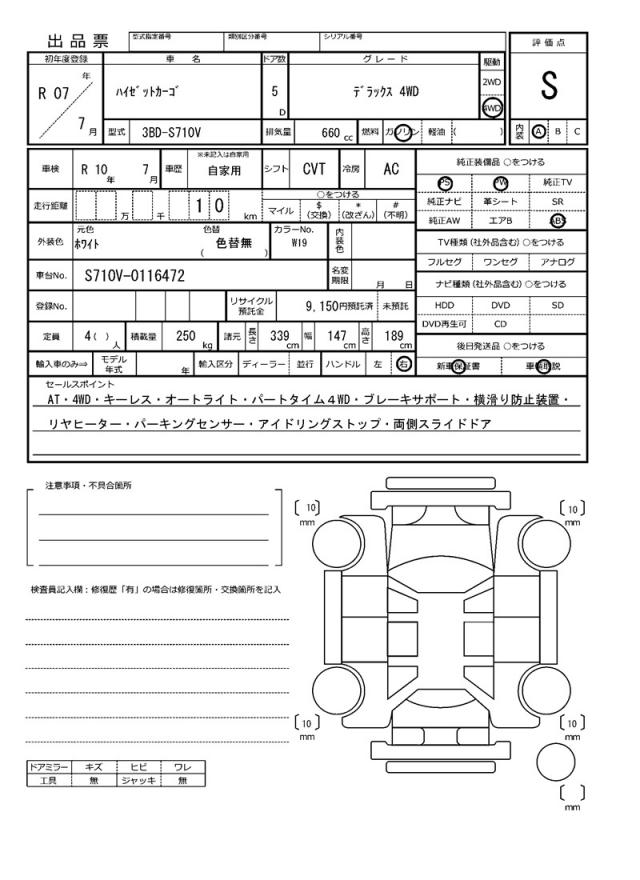 出品票
型式指定番号 類別区分番号 シリアル番号
評価点
S
初年度登録 車名 ドア数 グレード 駆動
R 07 年 7 月
ハイゼットカーゴ 5 D デラックス 4WD
2WD
4WD
型式 3BD-S710V 排気量 660 cc 燃料 ガソリン 軽油 ( )
内装 A B C
車検 R 10 年 7 月 車歴 ※未記入は自家用 自家用 シフト CVT 冷房 AC
走行距離 万 千 1 0 km
○をつける
マイル $ (交換) * (改ざん) # (不明)
外装色 元色 ホワイト 色替 色替無 ( ) カラーNo. W19 内装色
車台No. S710V-0116472 名変期限 月 日
登録No. リサイクル預託金 9,150円預託済 未預託
定員 4( ) 人 積載量 250 kg 諸元 長さ 339 cm 幅 147 cm 高さ 189 cm
輸入車のみ⇒ モデル年式 年 輸入区分 ディーラー 並行 ハンドル 左 右
純正装備品 ○をつける
PS PW 純正TV
純正ナビ 革シート SR
純正AW エアB ABS
TV種類 (社外品含む) ○をつける
フルセグ ワンセグ アナログ
ナビ種類 (社外品含む) ○をつける
HDD DVD SD
DVD再生可 CD
後日発送品 ○をつける
新車保証書 車輌取説
セールスポイント
AT・4WD・キーレス・オートライト・パートタイム4WD・ブレーキサポート・横滑り防止装置・
リヤヒーター・パーキングセンサー・アイドリングストップ・両側スライドドア
注意事項・不具合箇所
検査員記入欄:修復歴「有」の場合は修復箇所・交換箇所を記入
ドアミラー キズ ヒビ ワレ
工具 無 ジャッキ 無
〔 10 〕 mm
〔 10 〕 mm
〔 10 〕 mm
〔 10 〕 mm
〔 〕 mm